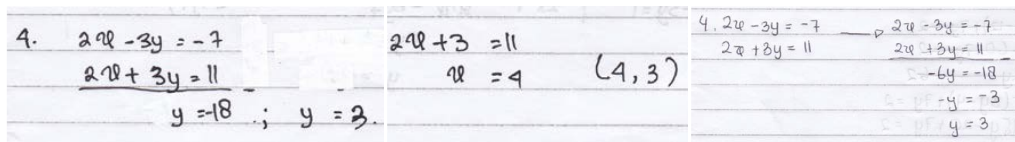 4. 2x - 3y = -7
2x + 3y = 11 -
y = -18 ; y = 3.
2x + 3 = 11
x = 4 (4, 3)
4. 2x - 3y = -7 → 2x - 3y = -7
2x + 3y = 11 2x + 3y = 11 -
-6y = -18
-y = -3
y = 3